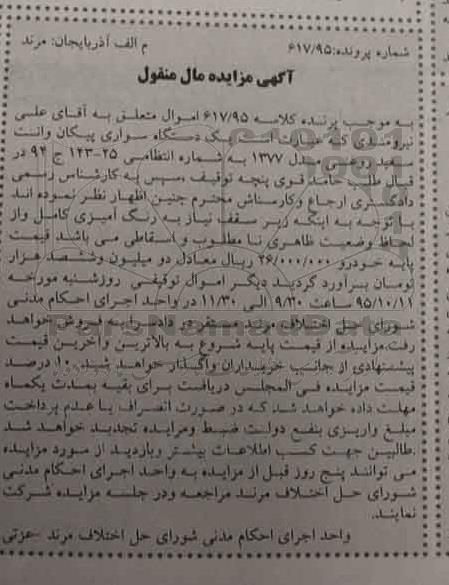 شماره پرونده:۶۱۷/۹۵ م الف آذربایجان: مرند
آگهی مزایده مال منقول
به موجب پرنده کلاسه ۶۱۷/۹۵ اموال متعلق به آقای علی
نیرومندی که عبارت است یک دستگاه سواری پیکان وانت
سفید روغنی مدل ۱۳۷۷ به شماره انتظامی ۲۵-۱۲۳ ج ۹۴ در
قبال طلب حامد قوی پنچه توقیف ،سپس به کارشناس رسمی
دادگستری ارجاع وکارسناش محترم چنین اظهار نظر نموده اند
با توجه به اینکه زیر سقف نیاز به رنگ آمیزی کامل واز
لحاظ وضعیت ظاهری نا مطلوب و اسقاطی می باشد قیمت
پایه خودرو ۲۶/۰۰۰/۰۰۰ ریال معادل دو میلیون وششصد هزار
تومان برآورد گردید دیگر اموال توقیفی روزشنبه مورخه
۹۵/۱۰/۱۱ ساعت ۹/۳۰ الی ۱۱/۳۰ در واحد اجرای احکام مدنی
شورای حل اختلاف مرند مستقر در دادسرا به فروش خواهد
رفت.مزایده از قیمت پایه شروع به بالاترین وآخرین قیمت
پیشنهادی از جانب خریداران واگذار خواهد شد. ۱۰ درصد
قیمت مزایده فی المجلس دریافت برای بقیه بمدت یکماه
مهلت داده خواهد شد که در صورت انصراف یا عدم پرداخت
مبلغ واریزی بنفع دولت ضبط ومزایده تجدید خواهد شد
.طالبین جهت کسب اطلاعات بیشتر وبازدید از مورد مزایده
می توانند پنج روز قبل از مزایده به واحد اجرای احکام مدنی
شورای حل اختلاف مرند مراجعه ودر جلسه مزایده شرکت
نمایند.
واحد اجرای احکام مدنی شورای حل اختلاف مرند -عزتی